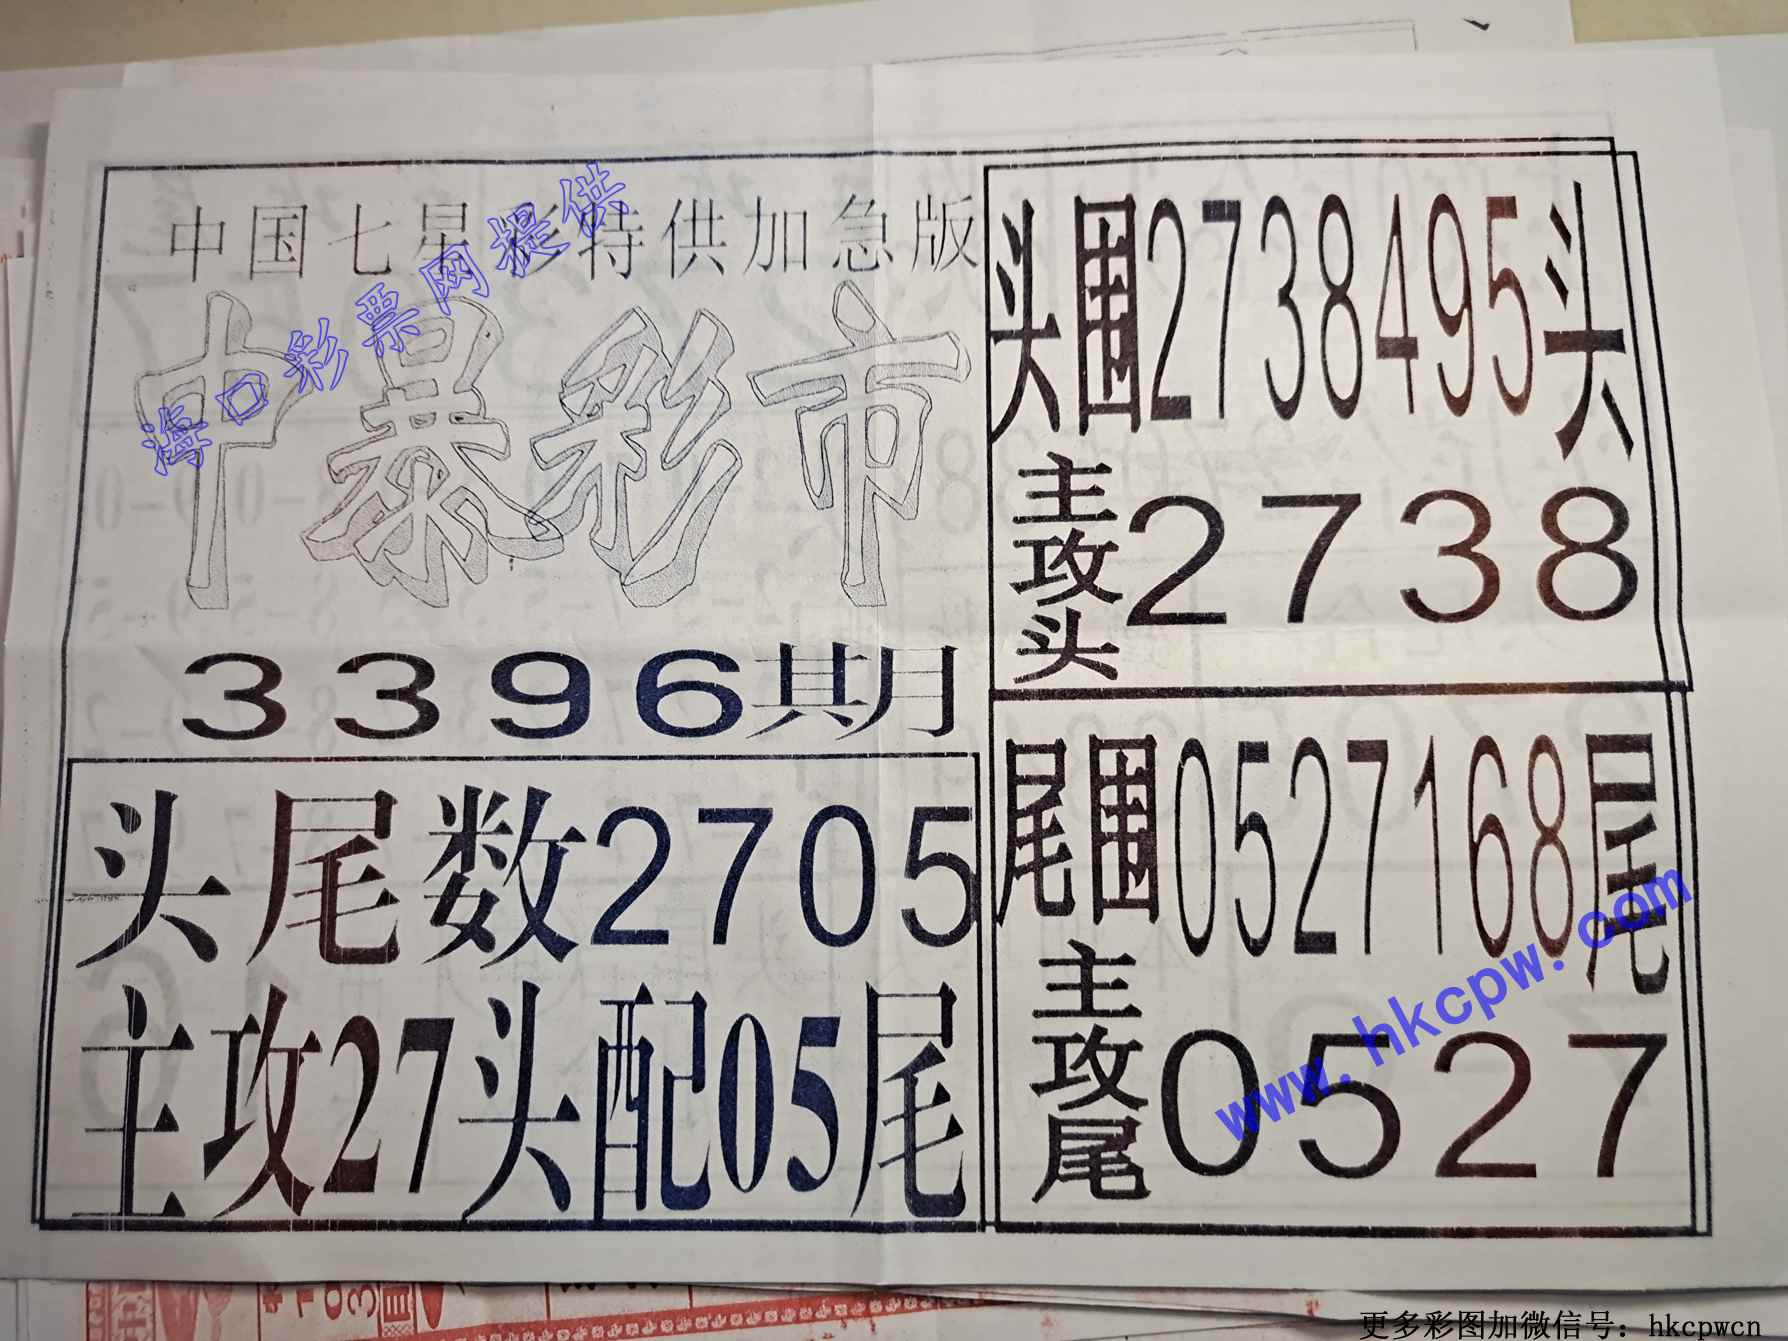 中国七星彩特供加急版
中暴彩市
3396期
头尾数2705
主攻27头配05尾
头围2738495头
主攻头2738
尾围0527168尾
主攻尾0527
海口彩票网提供
www.hkcpw.com
更多彩图加微信号：hkcpwcn